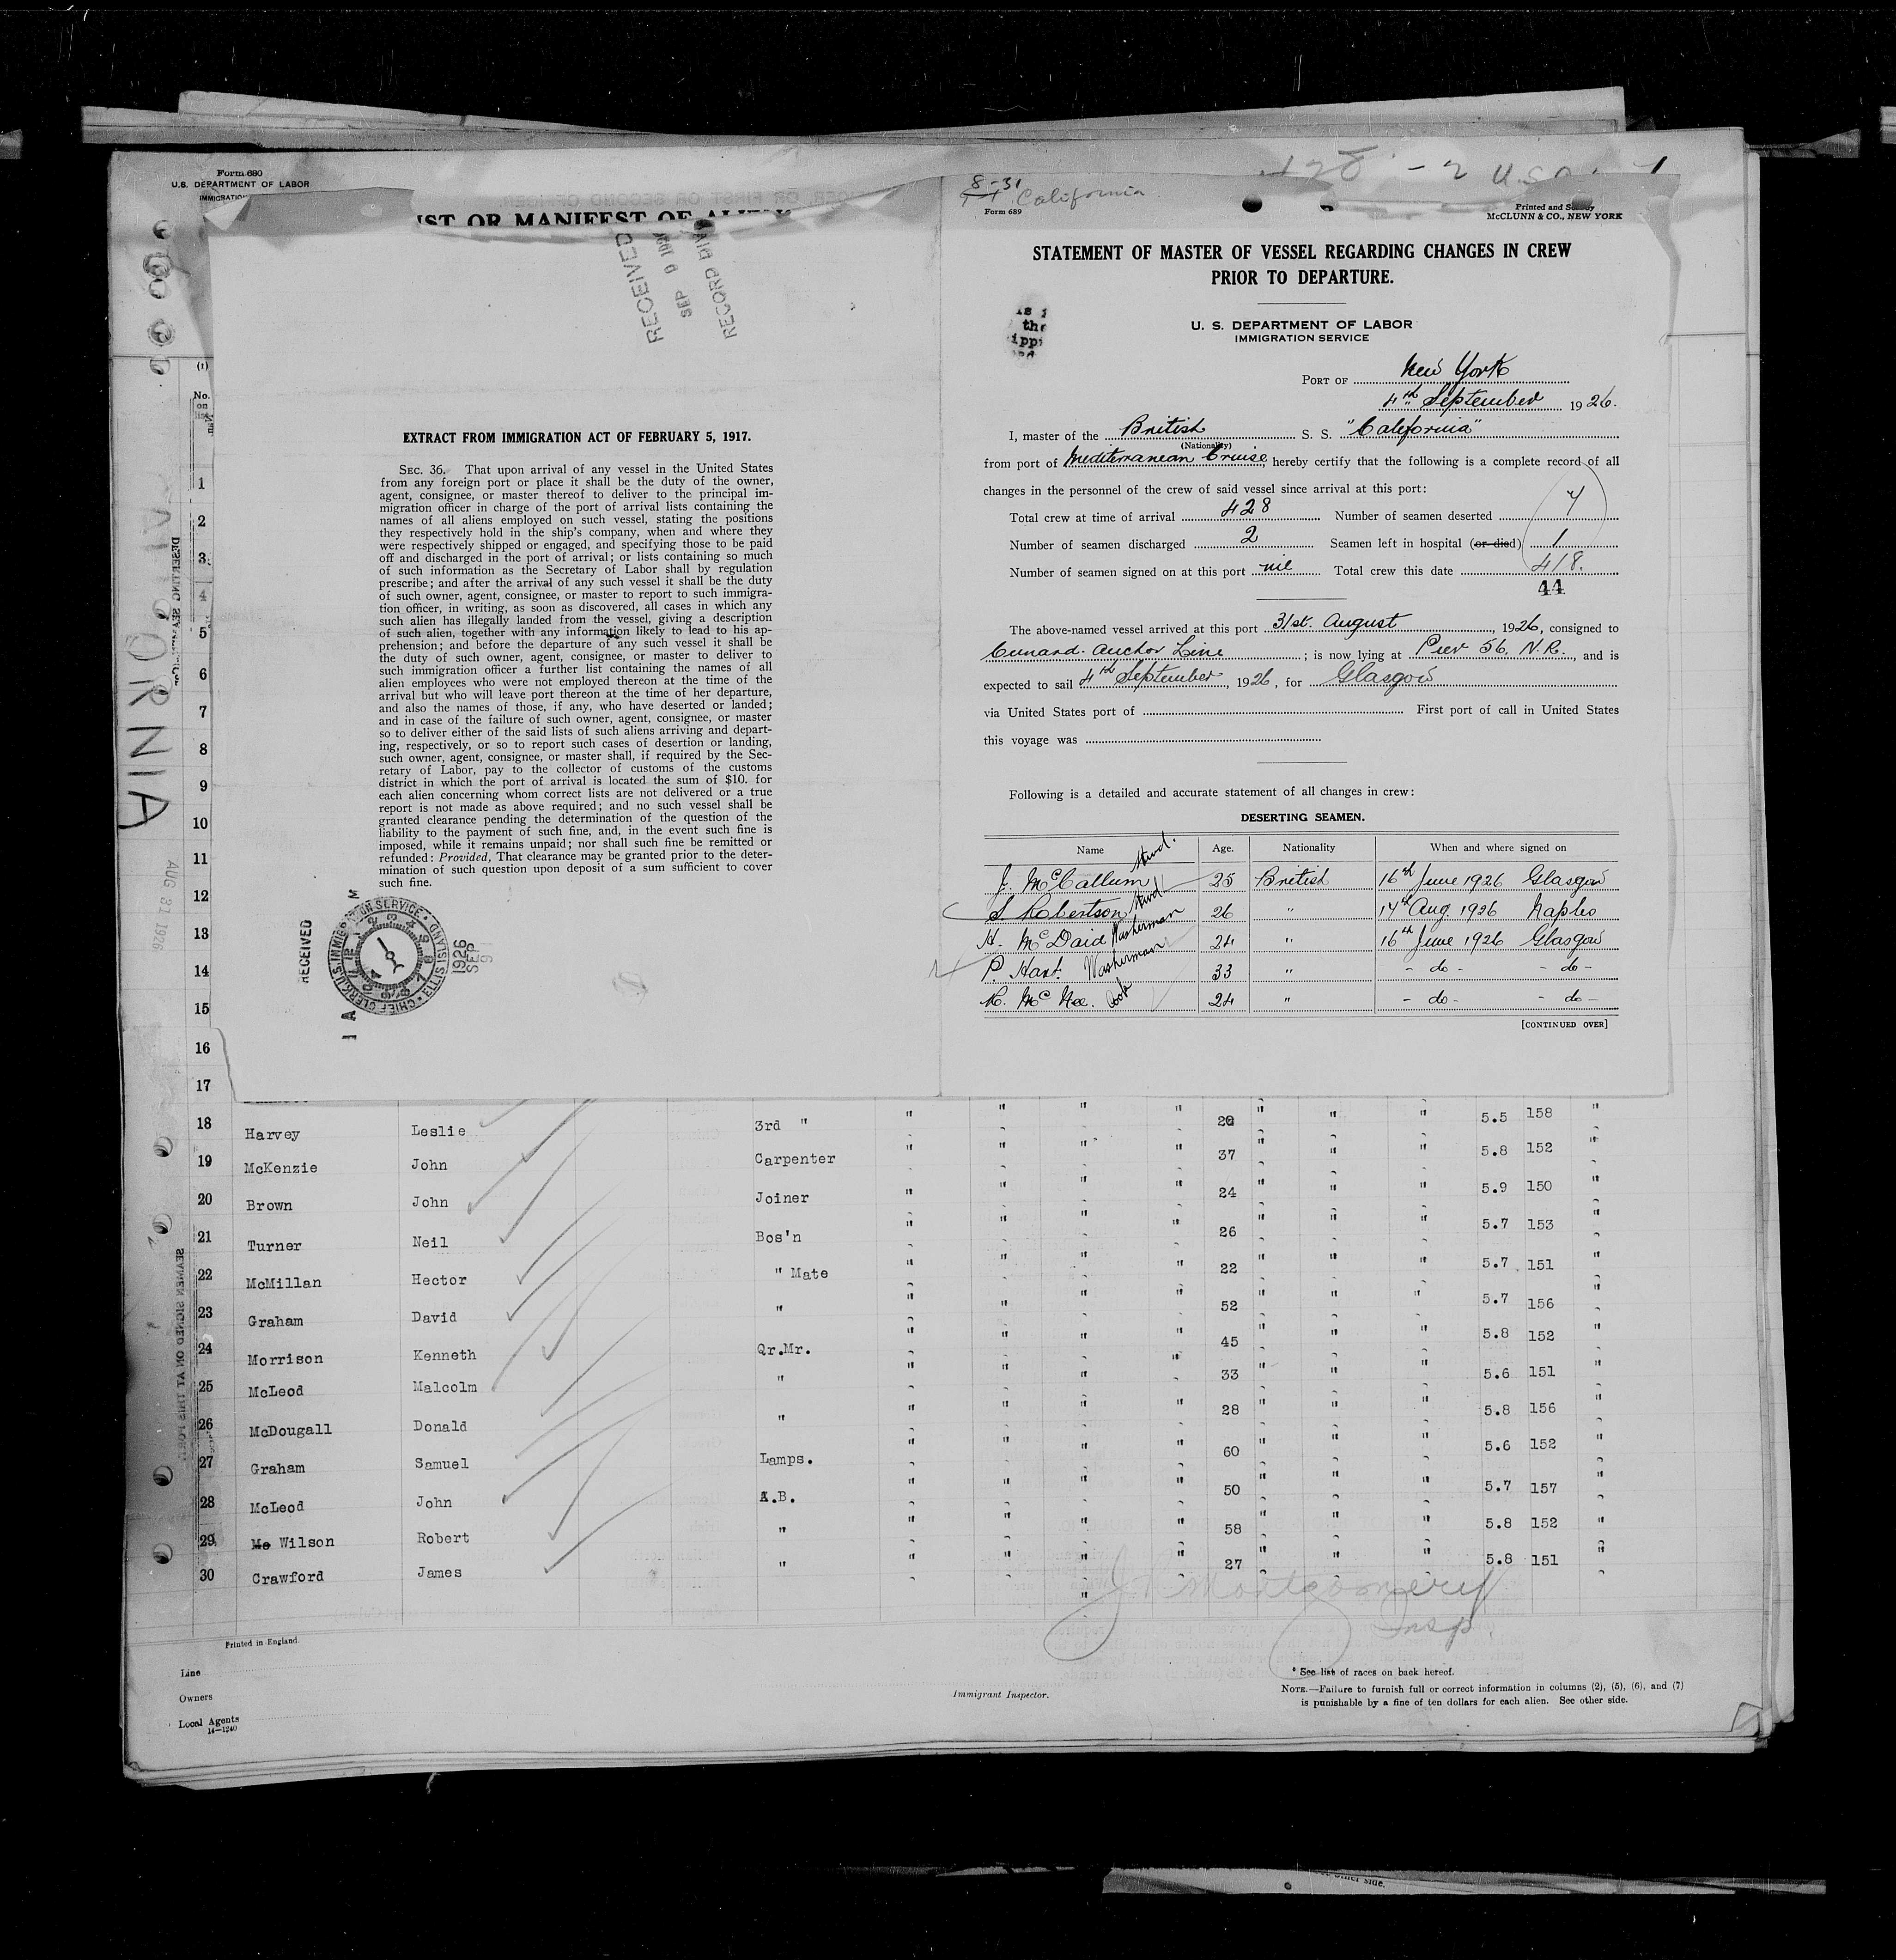 Form 680
U.S. DEPARTMENT OF LABOR
IST OR MANIFEST OF ALIEN
RECEIVED
SEP 9 192
RECORD DIVI
EXTRACT FROM IMMIGRATION ACT OF FEBRUARY 5, 1917.
SEC. 36. That upon arrival of any vessel in the United States
from any foreign port or place it shall be the duty of the owner,
agent, consignee, or master thereof to deliver to the principal im-
migration officer in charge of the port of arrival lists containing the
names of all aliens employed on such vessel, stating the positions
they respectively hold in the ship's company, when and where they
were respectively shipped or engaged, and specifying those to be paid
off and discharged in the port of arrival; or lists containing so much
of such information as the Secretary of Labor shall by regulation
prescribe; and after the arrival of any such vessel it shall be the duty
of such owner, agent, consignee, or master to report to such immigra-
tion officer, in writing, as soon as discovered, all cases in which any
such alien has illegally landed from the vessel, giving a description
of such alien, together with any information likely to lead to his ap-
prehension; and before the departure of any such vessel it shall be
the duty of such owner, agent, consignee, or master to deliver to
such immigration officer a further list containing the names of all
alien employees who were not employed thereon at the time of the
arrival but who will leave port thereon at the time of her departure,
and also the names of those, if any, who have deserted or landed;
and in case of the failure of such owner, agent, consignee, or master
so to deliver either of the said lists of such aliens arriving and depart-
ing, respectively, or so to report such cases of desertion or landing,
such owner, agent, consignee, or master shall, if required by the Sec-
retary of Labor, pay to the collector of customs of the customs
district in which the port of arrival is located the sum of $10. for
each alien concerning whom correct lists are not delivered or a true
report is not made as above required; and no such vessel shall be
granted clearance pending the determination of the question of the
liability to the payment of such fine, and, in the event such fine is
imposed, while it remains unpaid; nor shall such fine be remitted or
refunded: Provided, That clearance may be granted prior to the deter-
mination of such question upon deposit of a sum sufficient to cover
such fine.
RECEIVED
CHIEF CLERK U.S. IMMIGRATION SERVICE ELLIS ISLAND
1926 SEP 9
AUG 31 1926
8-31 California
Form 689
Printed and Sold by
McCLUNN & CO., NEW YORK
STATEMENT OF MASTER OF VESSEL REGARDING CHANGES IN CREW
PRIOR TO DEPARTURE.
U. S. DEPARTMENT OF LABOR
IMMIGRATION SERVICE
PORT OF New York
4th September 1926.
I, master of the British S. S. "California"
(Nationality)
from port of Mediterranean Cruise, hereby certify that the following is a complete record of all
changes in the personnel of the crew of said vessel since arrival at this port:
Total crew at time of arrival 428 Number of seamen deserted 7
Number of seamen discharged 2 Seamen left in hospital (or died) 1
Number of seamen signed on at this port nil Total crew this date 418.
44
The above-named vessel arrived at this port 31st. August, 1926, consigned to
Cunard. Anchor Line; is now lying at Pier 56. N.R., and is
expected to sail 4th September, 1926, for Glasgow
via United States port of First port of call in United States
this voyage was
Following is a detailed and accurate statement of all changes in crew:
DESERTING SEAMEN.
Name Age. Nationality When and where signed on
J. McCallum Stwd. 25 British 16th June 1926 Glasgow
S. Robertson Stwd 26 " 14th Aug. 1926 Naples
H. McDaid Washerman 24 " 16th June 1926 Glasgow
P. Hart. Washerman 33 " - do - - do -
H. McNee. Cook 24 " - do - - do -
[CONTINUED OVER]
(1)
No.
on
list
1
2
3
4
5
6
7
8
9
10
11
12
13
14
15
16
17
18 Harvey Leslie 3rd " " " " " 20 " " " 5.5 158 "
19 McKenzie John Carpenter " " " " 37 " " " 5.8 152 "
20 Brown John Joiner " " " " 24 " " " 5.9 150 "
21 Turner Neil Bos'n " " " " 26 " " " 5.7 153 "
22 McMillan Hector " Mate " " " " 22 " " " 5.7 151 "
23 Graham David " " " " " 52 " " " 5.7 156 "
24 Morrison Kenneth Qr.Mr. " " " " 45 " " " 5.8 152 "
25 McLeod Malcolm " " " " " 33 " " " 5.6 151 "
26 McDougall Donald " " " " " 28 " " " 5.8 156 "
27 Graham Samuel Lamps. " " " " 60 " " " 5.6 152 "
28 McLeod John A.B. " " " " 50 " " " 5.7 157 "
29 Mc Wilson Robert " " " " " 58 " " " 5.8 152 "
30 Crawford James " " " " " 27 " " " 5.8 151 "
J Montgomery
Insp.
Printed in England.
Line
Owners
Local Agents
14—1240
Immigrant Inspector.
* See list of races on back hereof.
NOTE.—Failure to furnish full or correct information in columns (2), (5), (6), and (7)
is punishable by a fine of ten dollars for each alien. See other side.